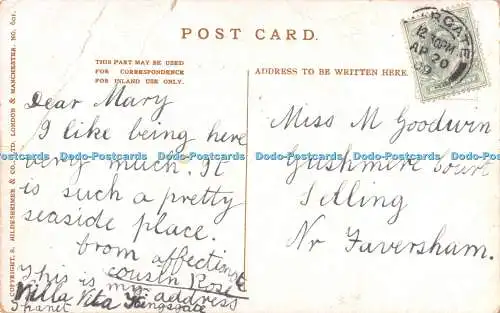 POST CARD.
THIS PART MAY BE USED
FOR CORRESPONDENCE
FOR INLAND USE ONLY.
ADDRESS TO BE WRITTEN HERE.
COPYRIGHT, S. HILDESHEIMER & CO., LTD. LONDON & MANCHESTER. NO. 601.
RGATE
12.0PM
AP 20
09
Dear Mary
I like being here
very much. It
is such a pretty
seaside place.
from affectionate
cousin Rose
This is my address
Villa Vita Kingsgate
Thanet
Miss M Goodwin
Gushmere Court
Selling
Nr Faversham.
Dodo-Postcards Dodo-Postcards Dodo-Postcards Dodo-Postcards